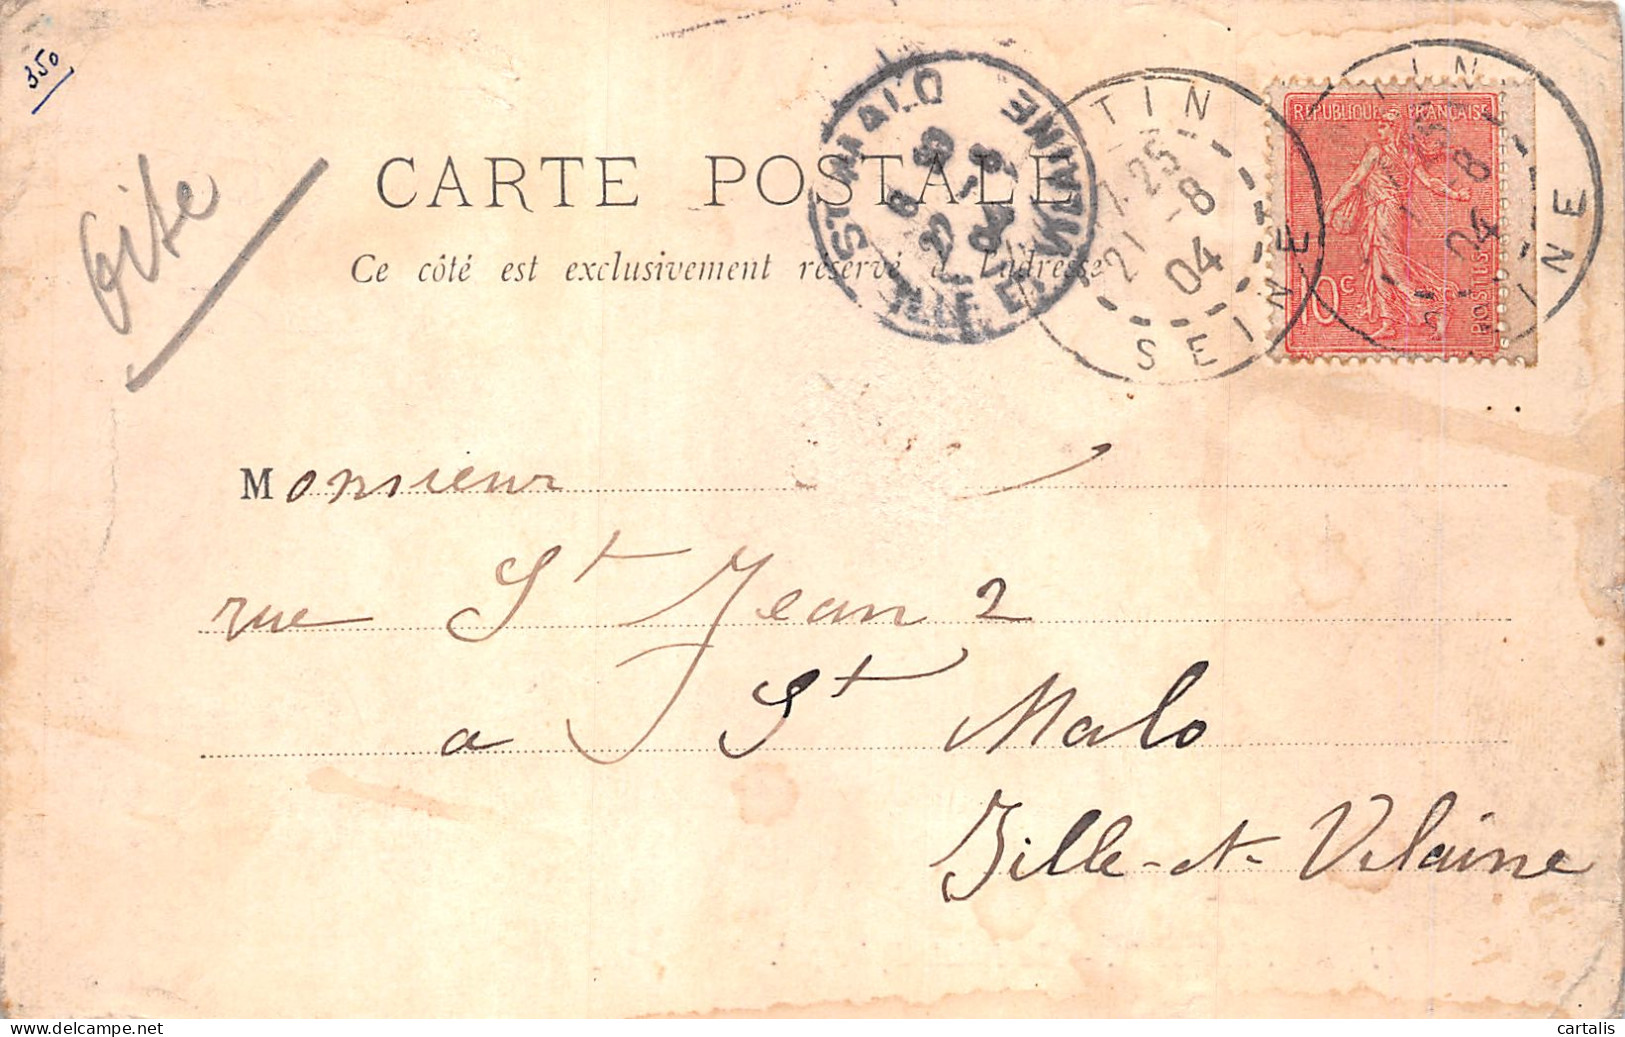 350
Gite
CARTE POSTALE
Ce côté est exclusivement réservé à l'adresse
ST MALO
ILLE ET VILAINE
TIN
7 25
21 -8
04
SEINE
REPUBLIQUE FRANÇAISE
10 c
POSTES
TIN
-8
04
INE
Monsieur
rue St Jean 2
a St Malo
Ille-et-Vilaine
cartalis
delcampe.net